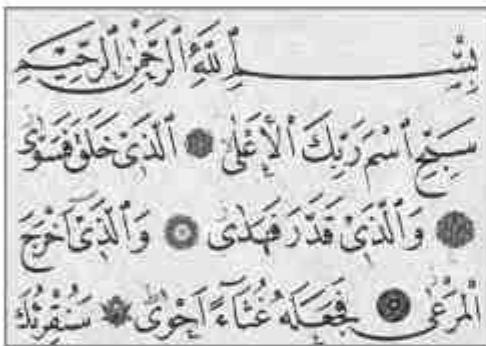 بِسْمِ اللّٰهِ الرَّحْمٰنِ الرَّحِيْمِ
سَبِّحِ اسْمَ رَبِّكَ الْاَعْلٰى ۝ الَّذِىْ خَلَقَ فَسَوّٰى
۝ وَالَّذِىْ قَدَّرَ فَهَدٰى ۝ وَالَّذِىْٓ اَخْرَجَ
الْمَرْعٰى ۝ فَجَعَلَهٗ غُثَآءً اَحْوٰى ۝ سَنُقْرِئُكَ